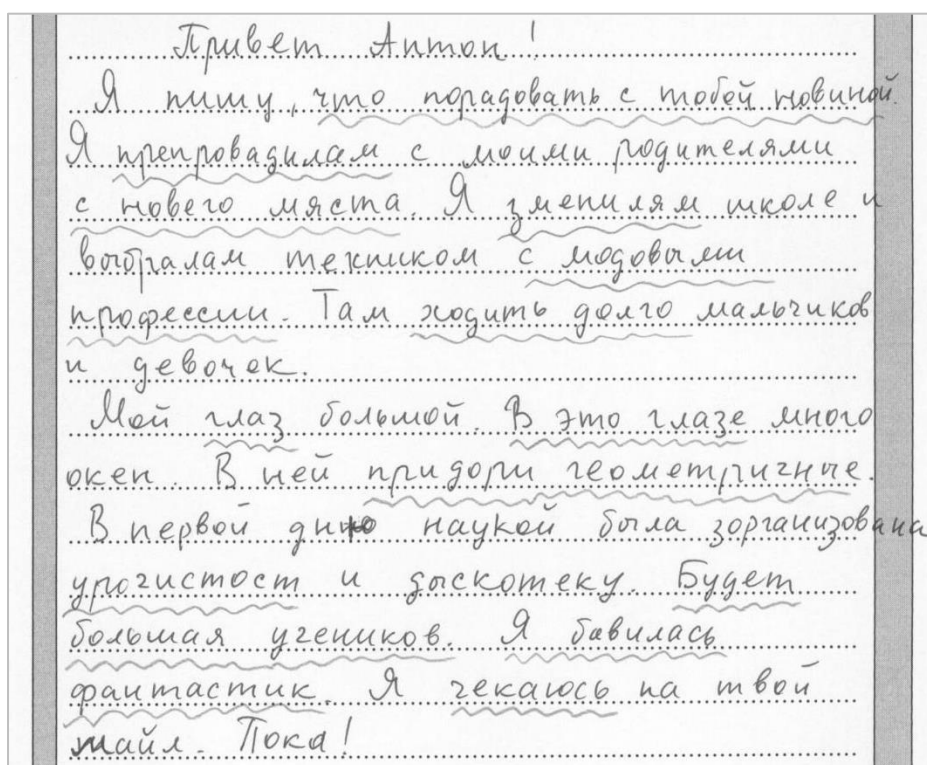 Привет Антон!
Я пишу, что порадовать с тобой новиной.
Я препровадилам с моими родителями
с новего мяста. Я зменилям школе и
выбралам техником с модовыми
профессии. Там ходить долго мальчиков
и девочек.
Мой глаз большой. В это глазе много
окен. В ней придори геометричные.
В первой дню наукой была зорганизована
урогистост и дыскотеку. Будет
большая учеников. Я бавилась
фантастик. Я чекаюсь на твой
майл. Пока!